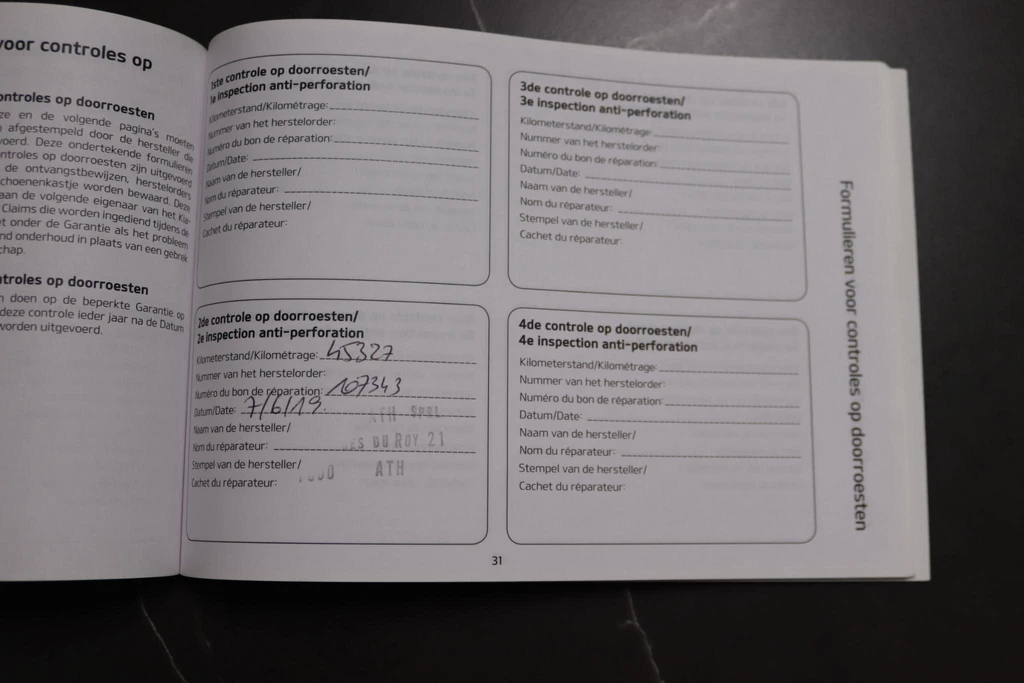 voor controles op
controles op doorroesten
ze en de volgende pagina's moeten
afgestempeld door de hersteller die
voerd. Deze ondertekende formulieren
ntroles op doorroesten zijn uitgevoerd
de ontvangstbewijzen, herstelorders
choenenkastje worden bewaard. Deze
aan de volgende eigenaar van het Kia-
Claims die worden ingediend tijdens de
t onder de Garantie als het probleem
nd onderhoud in plaats van een gebrek
chap.
ntroles op doorroesten
n doen op de beperkte Garantie op
deze controle ieder jaar na de Datum
worden uitgevoerd.
1ste controle op doorroesten/
1e inspection anti-perforation
Kilometerstand/Kilométrage:
Nummer van het herstelorder:
Numéro du bon de réparation:
Datum/Date:
Naam van de hersteller/
Nom du réparateur:
Stempel van de hersteller/
Cachet du réparateur:
2de controle op doorroesten/
2e inspection anti-perforation
Kilometerstand/Kilométrage: 45327
Nummer van het herstelorder:
Numéro du bon de réparation: 107343
Datum/Date: 7/6/19.
ATH SPRL
Naam van de hersteller/
Nom du réparateur:
ES DU ROY 21
Stempel van de hersteller/
ATH
Cachet du réparateur:
3de controle op doorroesten/
3e inspection anti-perforation
Kilometerstand/Kilométrage:
Nummer van het herstelorder:
Numéro du bon de réparation:
Datum/Date:
Naam van de hersteller/
Nom du réparateur:
Stempel van de hersteller/
Cachet du réparateur:
4de controle op doorroesten/
4e inspection anti-perforation
Kilometerstand/Kilométrage:
Nummer van het herstelorder:
Numéro du bon de réparation:
Datum/Date:
Naam van de hersteller/
Nom du réparateur:
Stempel van de hersteller/
Cachet du réparateur:
Formulieren voor controles op doorroesten
31